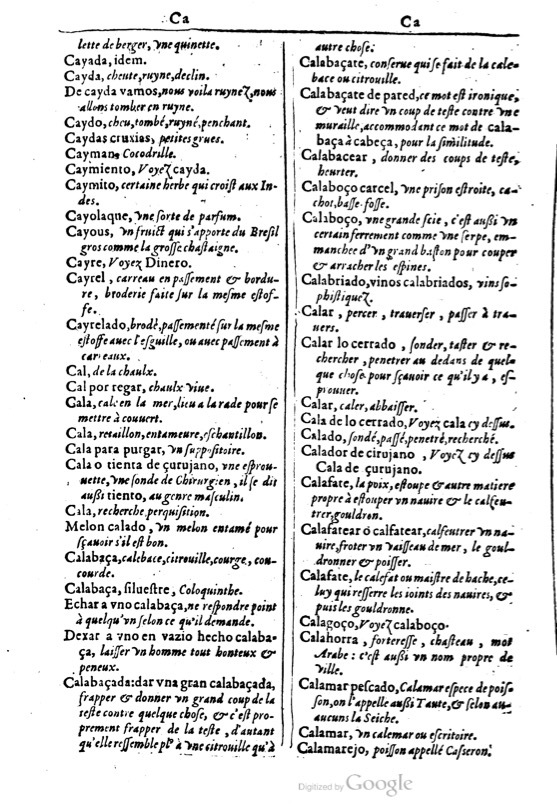 Ca
lette de berger, vne quinette.
Cayada, idem.
Cayda, cheute, ruyne, declin.
De cayda vamos, nous voila ruynez, nous
allons tomber en ruyne.
Caydo, cheu, tombé, ruyné, penchant.
Caydas cruxias, petites grues.
Cayman, Cocodrille.
Caymiento, Voyez cayda.
Caymito, certaine herbe qui croist aux In-
des.
Cayolaque, vne sorte de parfum.
Cayous, vn fruict qui s'apporte du Bresil
gros comme la grosse chastaigne.
Cayre, Voyez Dinero.
Cayrel, carreau en passement & bordu-
re, broderie faite sur la mesme estof-
fe.
Cayrelado, brodé, passementé sur la mesme
estoffe auec l'esguille, ou auec passement à
carreaux.
Cal, de la chaulx.
Cal por regar, chaulx viue.
Gala, cale en la mer, lieu a la rade pour se
mettre à couuert.
Cala, retaillon, entameure, eschantillon.
Cala para purgar, vn suppositoire.
Cala o tienta de çurujano, vne esprou-
uette, vne sonde de Chirurgien, il se dit
aussi tiento, au genre masculin.
Cala, recherche, perquisition.
Melon calado, vn melon entamé pour
sçauoir s'il est bon.
Calabaça, calebace, citrouille, courge, cou-
courde.
Calabaça, siluestre, Coloquinthe.
Echar a vno calabaça, ne respondre point
à quelqu'vn selon ce qu'il demande.
Dexar a vno en vazio hecho calaba-
ça, laisser vn homme tout honteux &
peneux.
Calabaçada: dar vna gran calabaçada,
frapper & donner vn grand coup de la
teste contre quelque chose, & c'est pro-
prement frapper de la teste, d'autant
qu'elle ressemble pl° à vne citrouille qu'à
Ca
autre chose.
Calabaçate, conserue qui se fait de la cale-
bace ou citrouille.
Calabaçate de pared, ce mot est ironique,
& veut dire vn coup de teste contre vne
muraille, accommodant ce mot de cala-
baça à cabeça, pour la similitude.
Calabacear, donner des coups de teste,
heurter.
Calaboço carcel, vne prison estroite, ca-
chot, basse-fosse.
Calaboço, vne grande scie, c'est aussi vn
certain ferrement comme vne serpe, em-
manchee d'vn grand baston pour couper
& arracher les espines.
Calabriado, vinos calabriados, vins so-
phistiquez.
Calar, percer, trauerser, passer à tra-
uers.
Calar lo cerrado, sonder, taster & re-
chercher, penetrer au dedans de quel-
que chose pour sçauoir ce qu'il y a, es-
prouuer.
Calar, caler, abbaisser.
Cala de lo cerrado, Voyez cala cy dessus.
Calado, sondé, passé, penetré, recherché.
Calador de cirujano, Voyez cy dessus
Cala de çurujano.
Calafate, la poix, estoupe & autre matiere
propre à estouper vn nauire & le calfeu-
trer, gouldron.
Calafatear ó calfatear, calfeutrer vn na-
uire, froter vn vaisseau de mer, le goul-
dronner & poisser.
Calafate, le calefat ou maistre de hache, ce-
luy qui resserre les ioints des nauires, &
puis les gouldronne.
Calagoço, Voyez calaboço.
Calahorra, forteresse, chasteau, mot
Arabe: c'est aussi vn nom propre de
ville.
Calamar pescado, Calamar espece de pois-
son, on l'appelle aussi Taute, & selon au-
aucuns la Seiche.
Calamar, vn calemar ou escritoire.
Calamarejo, poisson appellé Casseron.
Digitized by Google